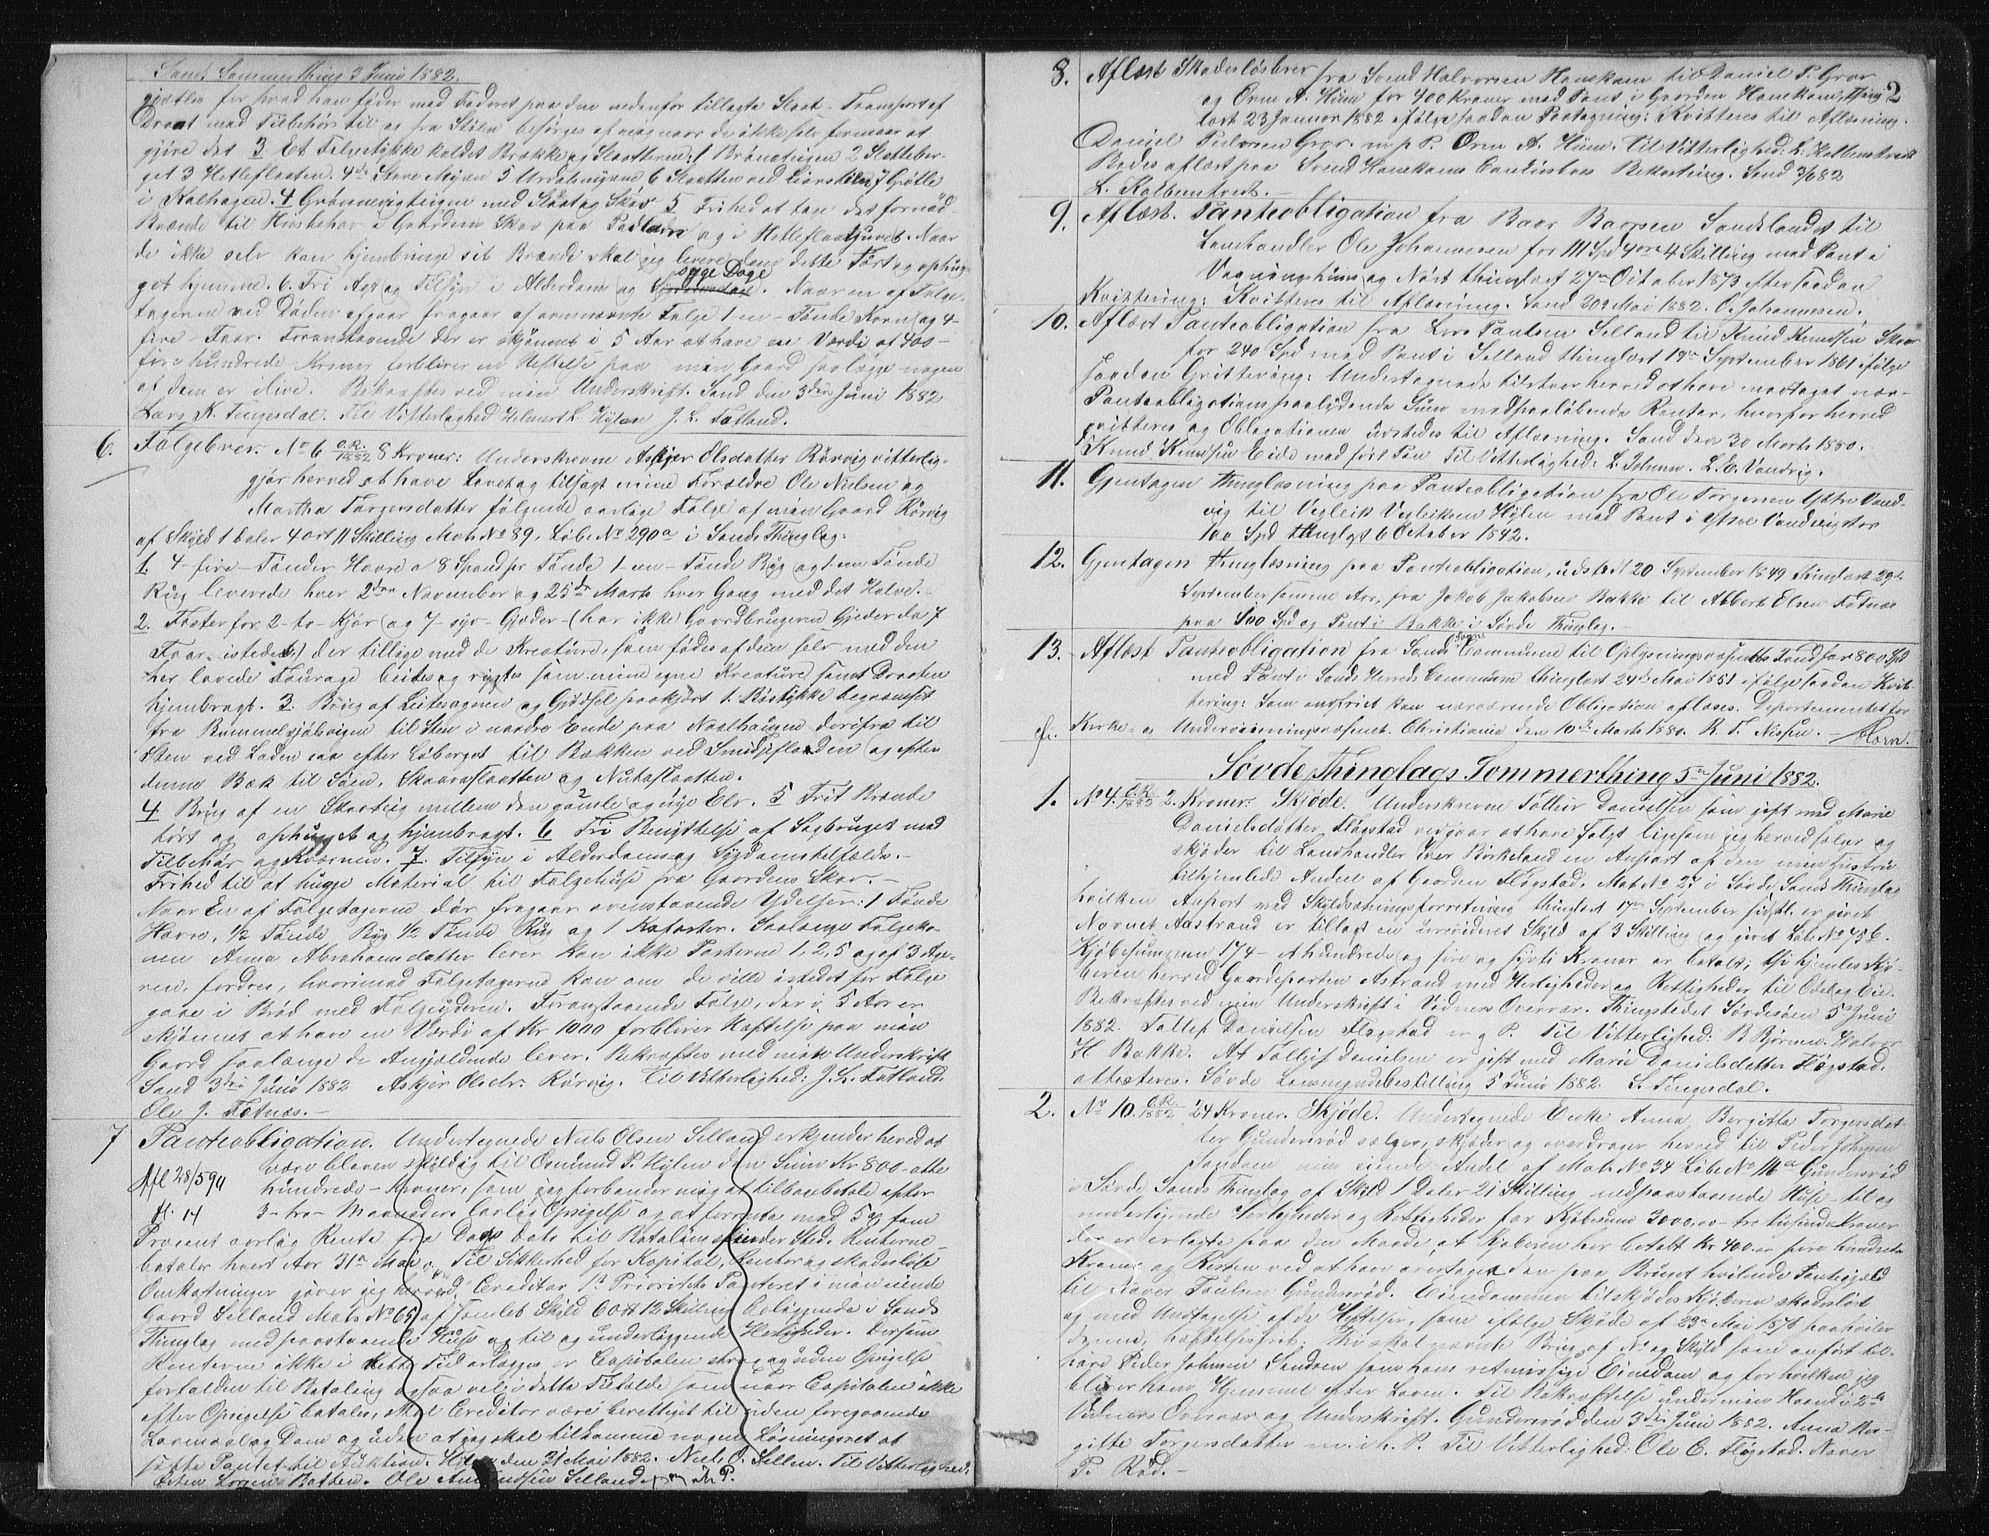 Sands Sommerthing 3 Juni 1882.
gjælles for hvad han føder med Foderet paa den nedenfor tillagte Slaat. Transport af
Draat med Tilbehør til og fra Stølen besørges af mig naar de ikke selv formaar at
gjøre det 3 Et Følgestykke kaldet Brakke og Slaatterne: 1 Brønsteigen 2 Sletteber-
get 3 Hetleflaaten. 4de Store Myren 5 Urdalsmyrene 6 Slaatten ved 7 Grøtle
i Kalhagen. 4 Grønnevigteigen med Slaat og Skov 5 Frihed at tage det fornød-
Brænde til Husbehov i Gaardens Skov paa og i Hetleflaatjuvet. Naar
de ikke selv kan hjembringe sit Brænde skal jeg levere dem dette Tørt og ophug-
syge Dage
get hjemme. 6. Fri Agt og Tilsyn i Alderdom og . Naar en af Følge-
tagerne ved Døden afgaar fragaar af ovennævnte Følge 1 - en - Tønde Korn og 4 -
fire - Faar. Foranstaaende der er skjønnet i 5 Aar at have en Værdi af 400 -
fire hundrede - Kroner forbliver en Heftelse paa min Gaard saalænge nogen
af dem er ilive. Bekræftes ved min Underskrift. Sand den 3die Juni 1882
Lars K. Tengesdal. Til Vitterlighed Helmert L. Hylen J. L. Fatland.
6. Følgebrev. No 6 O.R./1882 8 Kroner: Underskrevne Askjer Olsdatter Rørvig vitterlig-
gjør herved at have Lovet og tilsagt mine Forældre Ole Nielsen og
Martha Torgersdatter følgende aarlige Følge af min Gaard Rørvig
af Skyld 1 daler 4 ort 11 Skilling Mat. No 89, Løbe No 290a i Sands Thinglag:
1. 4 - fire - Tønder Havre a 8 Spand pr Tønde 1 - en - Tønde Byg og 1 - en Tønde
Rug leverede hver 2den November og 25de Marts hver Gang med det Halve. -
2. Foster for 2 - to - Kjør og 7 - syv - Gjeder - (har ikke Gaardbrugeren Gjeder da 7
Faar istedet) der tillige med de Kreature, som fødes af dem selv med den
her lovede Fourage beites og røgtes som mine egne Kreature samt Draaten
hjembragt. 3. Brug af Leitesageren og Gjødsel paakjørt 1. Risstykke begrænset
fra Rummelsjøbvigen til Sten i nordre Ende paa Naalhaugen derifra til
Sten ved Laden saa efter Løberget til Bækken ved Smidjeflaaden og efter
denne Bæk til Søen. Skaaraslaatten og Nutaslaatten.
4 Brug af en Skovteig mellem den gamle og nye Elv. 5 Frit Brænde
tørt og ophugget og hjembragt. 6 Fri Benyttelse af Sagbruget med
Tilbehør og Kværnen. 7. Tilsyn i Alderdoms og Sygdomstilfælde. -
Frihed til at hugge Material til Følgehuse fra Gaardens Skov. -
Naar En af Følgetagerne dør fragaar ovenstaaende Ydelser: 1 Tønde
Havre, 1/2 Tønde Byg 1/2 Tønde Rug og 1 Kofoster. Saalænge Følgeko-
nen Anna Abrahamsdatter lever kan ikke Posterne 1, 2, 5 og af 3 Age-
ren, fordres, hvorimod Følgetagerne kan om de ville istedet for Følge
gaae i Brød med Følgeyderen. Foranstaaende Følge, der i 5 Aar er
skjønnet at have en Værdi af Kr 1000 forbliver Hæftelse paa min
Gaard saalænge de Angjældende lever. Bekræftes med min Underskrift
Sand 3die Juni 1882 Askjer Olsdtr. Rørvig. Til Vitterlighed: J. L. Fatland.
Ole J. Fatnæs. -
7 Pantobligation. Undertegnede Niels Olsen Selland erkjender herved at
være bleven skyldig til Osmund P. Hylen den Sum Kr 800 - otte
Afl 28/5 94
hundrede - Kroner, som jeg forbinder mig at tilbagebetale efter
fl. 14
3 - tre - Maaneders lovlig Opsigelse og at forrente med 5 og fem
Procent aarlig Rente fra Dags Dato til Betaling finder Sted. Renterne
betaler hvert Aar 31te Mai. Til Sikkerhed for Kapital, Renter og skadesløse
Omkostninger giver jeg herved Creditor 1ste Prioritets Panteret i min eiende
Gaard Selland Mat. No 65 af samlet Skyld 6 ort 12 Skilling beliggende i Sands
Thinglag med paastaaende Huse og til og underliggende Herligheder. Dersom
Renterne ikke i rette Tid erlægges er Capitalen strax og uden Opsigelse
forfalden til Betaling og saa vel i dette Tilfælde som naar Capitalen ikke
efter Opsigelse betales, skal Creditor være berettiget til uden foregaaende
Lovmaal og Dom og uden at jeg skal tilkomme nogen Løsningsret at
sætte Pantet til Auktion. Hylen den 31 Mai 1882. Niels O. Sellen. Til Vitterlighed:
Osten Larsen Bakken. Ole Amundsen Selland m i h P.
2
8. Aflæst Skadesløsbrev fra Svend Halvorsen Hanskam til Daniel P. Grov
og Orm A. Hiim for 400 Kroner med Pant i Gaarden Hanskam thing-
læst 23 Januar 1882 ifølge saadan Paategning: Kvitteres til Aflæsning.
Daniel Pedersen Grov. m p P. Orm A. Hiim. Til Vitterlighed: L. Kolbentvedt
Bedes aflæst paa Svend Hanskams Bekostning. Sand 3/6 82
L. Kolbentvedt. -
9. Aflæst. Panteobligation fra Baar Baarsen Sandslandet til
Landhandler Ole Johannesen for 111 Spd 4 ort 4 Skilling med Pant i
og Nøst thinglæst 27de October 1873 efter saadan
Kvittering: Kvitteres til Aflæsning. Sand 20de Mai 1882. O. Johannesen.
10. Aflæst Panteobligation fra Lars Paulsen Selland til Knud Knudsen Skaar
for 240 Spd med Pant i Selland thinglæst 17de September 1861 ifølge
saadan Qvittering: Undertegnede tilstaar herved at have modtaget nær-
Panteobligations paalydende Sum med paaløbende Renter, hvorfor herved
qvitteres og Obligationen udstedes til Aflæsning. Sand den 30 Marts 1880.
Knud Knudsen Eide med ført Pen Til Vitterlighed: L. L. C. Vandvig.
11. Gjentagen Thinglæsning paa Panteobligation fra Ole Torgersen Ytre Vand-
vig til Vegleik Vegleiksen Hylen med Pant i Ytre Vandvig stor
100 Spd thinglyst 6 October 1842.
12. Gjentagen Thinglæsning paa Panteobligation, udstedt 20 September 1849 Thinglæst 29de
September samme Aar, fra Jakob Jakobsen Bakke til Albert Elsen Fatnæs
paa 500 Spd og Pant i Bakke i Søvde Thinglag. -
13. Aflæst Panteobligation fra Sands Sogne Commune til Oplysningsvæsenets Fond for 800 Spd
med Pant i Sands Herreds Commune thinglæst 24de Mai 1851 ifølge saadan Kvit-
tering: Som indfriet kan nærværende Obligation aflæses. Departementet for
Kirke- og Undervisningsvæsenet. Christiania den 10de Marts 1881. R. T. Nissen.
Søvde Thinglags Sommerthing 5te Juni 1882.
1. No 4. O.R./1882 2. Kroner. Skjøde. Underskrevne Tolleiv Danielsen som gift med Marie
Danielsdatter Fløgstad vedgaar at have solgt ligesom jeg herved sælger og
skjøder til Landhandler Iver Birkeland en Anpart af den min Hustrue
tilhjemlede Andel af Gaarden Fløgstad. Mat. No 27 i Søvde, Sands Thinglag
hvilken Anpart ved Skyldsætningsforretning thinglæst 17de September sidstl. er givet
Navnet Aastrand er tillagt en urevideret Skyld af 3 Skilling og givet Løbe No 456.
Kjøbesummen 174 - Et hundrede og fire og syvti Kroner er betalt, thi hjemles Kjø-
beren herved Gaardeparten Astrand med Herligheder og Rettigheder til Odel og Eie.
Bekræftes ved min Underskrift i Vidners Overvær. Thingstedet Søvdesøen 5te Juni
1882. Tollef Danielsen Fløgstad m g P. Til Vitterlighed: B Bjørnsen. Halvor
H Bakke. At Tollef Danielsen er gift med Marie Danielsdatter Fløgstad.
attesteres. Søvde Lensmandsbestilling 5te Juni 1882. S. Tengesdal.
2. No 10. O.R./1882 24 Kroner. Skjøde. Undertegnede Enke Anna Bergitta Torgersdat-
ter Gundersrød sælger, skjøder og overdrager herved til Peder Johnsen
Sandsen min eiende Andel af Mat. No 34 Løbe No 111a Gundersrød
i Søvde Sands Thinglag af Skyld 1 Daler 21 Skilling med paastaaende Huse til og
underliggende Herligheder og Rettigheder for Kjøbesum 3000,00 - tre tusinde Kroner
der er erlagte paa den Maade, at Kjøberen har betalt Kr 400 er fire hundrede
Kroner og Resten ved at have overtaget den paa Bruget hvilende Pantegjæld
til Naver Paulsen Gundersrød. Eiendommen tilskjødes Kjøberen skadesløst
og med Undtagelse af de Heftelser, som ifølge Skjøde af 23de Mai 1876 paahviler
denne, hæftelsesfrit. Thi skal nævnte Brug af No og Skyld som anført til-
høre Peder Johnsen Sandsen som hans retmæssige Eiendom og for hvilken jeg
bliver hans Hjemmel efter Loven. Til Bekræftelse under min Haand i 2de
Vidners Overvær og Underskrift. Gundersrød den 3die Juni 1882. Anna Ber-
gitte Torgersdatter m. i. h. P. Til Vitterlighed: Ole C. Fløgstad. Naver
P. Rød. -